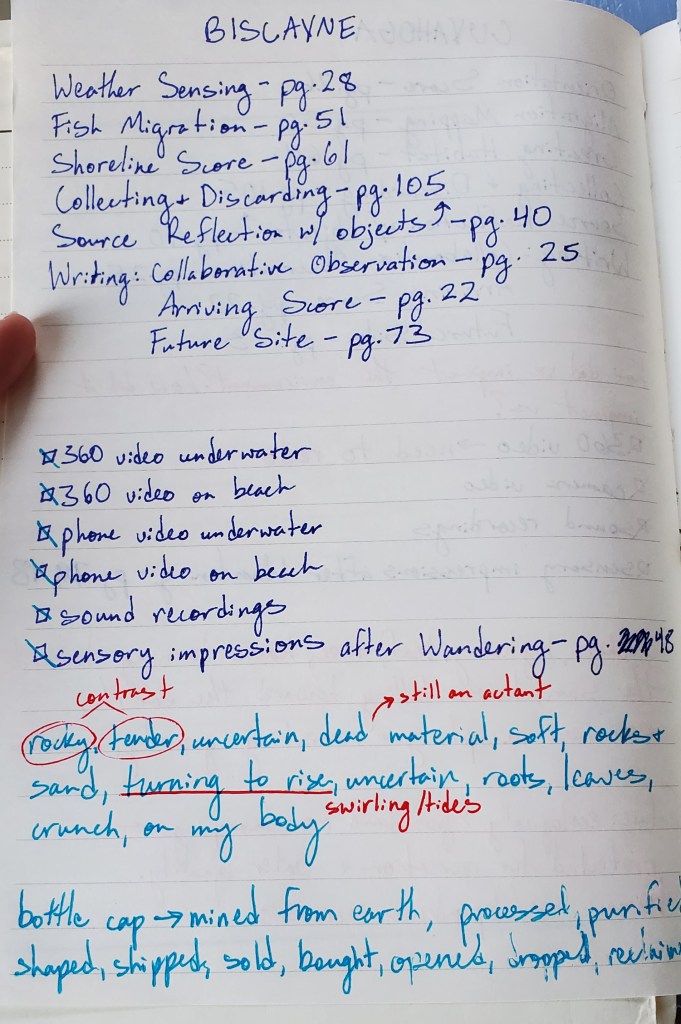 BISCAYNE
Weather Sensing - pg. 28
Fish Migration - pg. 51
Shoreline Score - pg. 61
Collecting + Discarding - pg. 105
Source Reflection w/ objects ↑ - pg. 40
Writing: Collaborative Observation - pg. 25
Arriving Score - pg. 22
Future Site - pg. 73
360 video underwater
360 video on beach
phone video underwater
phone video on beach
sound recordings
sensory impressions after Wandering - pg. 48
contrast
→ still an actant
rocky, tender, uncertain, dead material, soft, rocks +
sand, turning to rise, uncertain, roots, leaves,
swirling/tides
crunch, on my body
bottle cap → mined from earth, processed, purifie
shaped, shipped, sold, bought, opened, dropped, reclaim